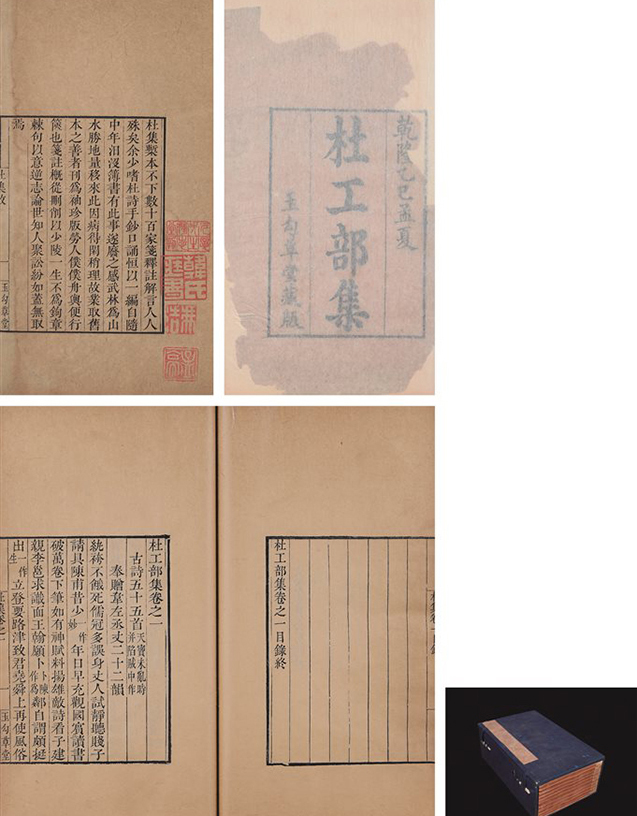 乾隆乙巳孟夏
杜工部集
玉勾草堂藏版
杜集槧本不下數十百家箋釋註解言人人
殊矣余少嗜杜詩手鈔口誦恒以一編自隨
中年汨沒簿書有此事遂廢之感武林為山
水勝地量移來此因病得閒稍理故業取舊
本之善者刊為袖珍版勞人僕僕舟輿便行
篋也箋註概從刪削以少陵一生不為鉤章
棘句以意逆志論世知人聚訟紛如蓋無取
焉
一 玉勾草堂
杜工部集卷之一目錄終
杜工部集卷之一
古詩五十五首天寶未亂時并陷賊中作
奉贈韋左丞丈二十二韻
紈袴不餓死儒冠多誤身丈人試靜聽賤子
請具陳甫昔少一作妙年日早充觀國賓讀書
破萬卷下筆如有神賦料揚雄敵詩看子建
親李邕求識面王翰願卜卜陳作為鄰自謂頗挺
出一作生立登要路津致君堯舜上再使風俗
杜集卷之一 一 玉勾草堂